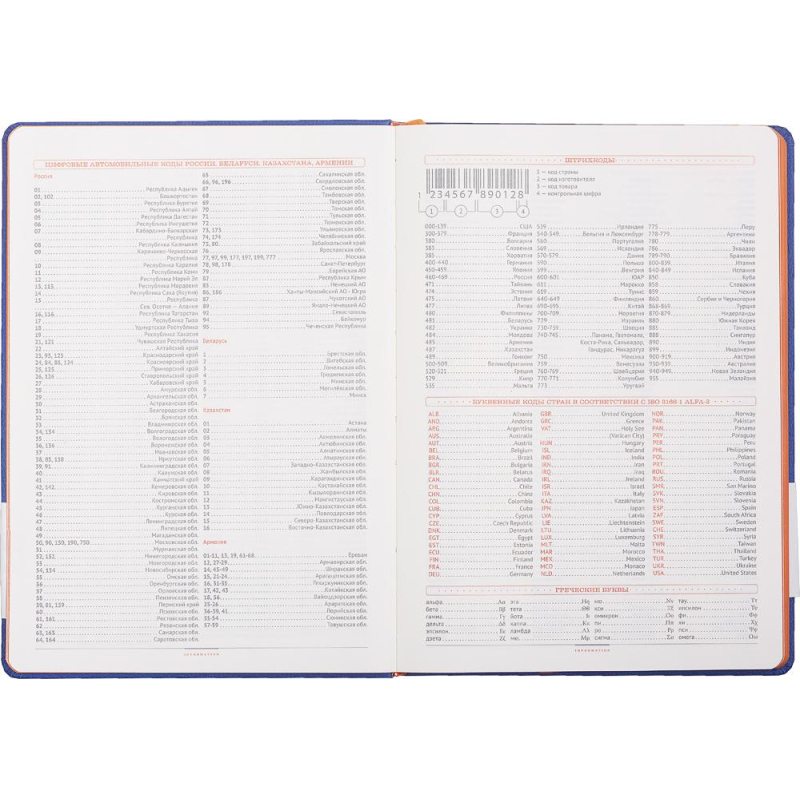 ЦИФРОВЫЕ АВТОМОБИЛЬНЫЕ КОДЫ РОССИИ, БЕЛАРУСИ, КАЗАХСТАНА, АРМЕНИИ
Россия
01 Республика Адыгея
02, 102 Башкортостан
03 Республика Бурятия
04 Республика Алтай
05 Республика Дагестан
06 Республика Ингушетия
07 Кабардино-Балкарская
Республика
08 Республика Калмыкия
09 Карачаево-Черкесская
Республика
10 Республика Карелия
11 Республика Коми
12 Республика Марий Эл
13, 113 Республика Мордовия
14 Республика Саха (Якутия)
15 Республика
Сев. Осетия — Алания
16, 116 Республика Татарстан
17 Республика Тыва
18 Удмуртская Республика
19 Республика Хакасия
21, 121 Чувашская Республика
22 Алтайский край
23, 93, 123 Краснодарский край
24, 84, 88, 124 Красноярский край
25, 125 Приморский край
26, 126 Ставропольский край
27 Хабаровский край
28 Амурская обл.
29 Архангельская обл.
30 Астраханская обл.
31 Белгородская обл.
32 Брянская обл.
33 Владимирская обл.
34, 134 Волгоградская обл.
35 Вологодская обл.
36, 136 Воронежская обл.
37 Ивановская обл.
38, 85, 138 Иркутская обл.
39, 91 Калининградская обл.
40 Калужская обл.
41 Камчатский край
42, 142 Кемеровская обл.
43 Кировская обл.
44 Костромская обл.
45 Курганская обл.
46 Курская обл.
47 Ленинградская обл.
48 Липецкая обл.
49 Магаданская обл.
50, 90, 150, 190, 750 Московская обл.
51 Мурманская обл.
52, 152 Нижегородская обл.
53 Новгородская обл.
54, 154 Новосибирская обл.
55 Омская обл.
56 Оренбургская обл.
57 Орловская обл.
58 Пензенская обл.
59, 81, 159 Пермский край
60 Псковская обл.
61, 161 Ростовская обл.
62 Рязанская обл.
63, 163 Самарская обл.
64, 164 Саратовская обл.
65 Сахалинская обл.
66, 96, 196 Свердловская обл.
67 Смоленская обл.
68 Тамбовская обл.
69 Тверская обл.
70 Томская обл.
71 Тульская обл.
72 Тюменская обл.
73, 173 Ульяновская обл.
74, 174 Челябинская обл.
75, 80 Забайкальский край
76 Ярославская обл.
77, 97, 99, 177, 197, 199, 777 Москва
78, 98, 178 Санкт-Петербург
79 Еврейская АО
82 Республика Крым
83 Ненецкий АО
86, 186 Ханты-Мансийский АО - Югра
87 Чукотский АО
89 Ямало-Ненецкий АО
92 Севастополь
94 Байконур
95 Чеченская Республика
Беларусь
1 Брестская обл.
2 Витебская обл.
3 Гомельская обл.
4 Гродненская обл.
5 Минская обл.
6 Могилёвская обл.
7 Минск
Казахстан
01 Астана
02 Алматы
03 Акмолинская обл.
04 Актюбинская обл.
05 Алматинская обл.
06 Атырауская обл.
07 Западно-Казахстанская обл.
08 Жамбылская обл.
09 Карагандинская обл.
10 Костанайская обл.
11 Кызылординская обл.
12 Мангистауская обл.
13 Южно-Казахстанская обл.
14 Павлодарская обл.
15 Северо-Казахстанская обл.
16 Восточно-Казахстанская обл.
Армения
01-11, 13, 19, 61-68 Ереван
12, 27-29 Армавирская обл.
14, 43-49 Ширакская обл.
15, 21-24 Арагацотнская обл.
16, 51-55 Гехаркуникская обл.
17, 42, 43 Котайкская обл.
18, 36 Лорийская обл.
25-26 Араратская обл.
36-39, 41 Лорийская обл.
33-34 Сюникская обл.
57-59 Тавушская обл.
INFORMATION
ШТРИХКОДЫ
1 234567 890128
1 2 3 4
1 — код страны
2 — код изготовителя
3 — код товара
4 — контрольная цифра
000-139 США
300-379 Франция
380 Болгария
383 Словения
385 Хорватия
400-440 Германия
450-459 Япония
460-469 Россия
471 Тайвань
474 Эстония
475 Латвия
477 Литва
480 Филиппины
481 Беларусь
482 Украина
484 Молдова
485 Армения
486 Грузия
487 Казахстан
489 Гонконг
500-509 Великобритания
520-521 Греция
529 Кипр
535 Мальта
539 Ирландия
540-549 Бельгия и Люксембург
560 Португалия
569 Исландия
570-579 Дания
590 Польша
599 Венгрия
600-601 ЮАР
611 Марокко
619 Тунис
640-649 Финляндия
690-695 Китай
700-709 Норвегия
729 Израиль
730-739 Швеция
740-745 Панама, Гватемала,
Коста-Рика, Сальвадор,
Гондурас, Никарагуа
750 Мексика
759 Венесуэла
760-769 Швейцария
770-773 Колумбия
773 Уругвай
775 Перу
778-779 Аргентина
780 Чили
786 Эквадор
789-790 Бразилия
800-839 Италия
840-849 Испания
850 Куба
858 Словакия
859 Чехия
860 Сербия и Черногория
868-869 Турция
870-879 Нидерланды
880 Южная Корея
885 Таиланд
888 Сингапур
890 Индия
899 Индонезия
900-919 Австрия
930-939 Австралия
940-949 Новая Зеландия
955 Малайзия
БУКВЕННЫЕ КОДЫ СТРАН В СООТВЕТСТВИИ С ISO 3166-1 ALFA-3
ALB Albania
AND Andorra
ARG Argentina
AUS Australia
AUT Austria
BEL Belgium
BRA Brazil
BGR Bulgaria
BLR Belarus
CAN Canada
CHL Chile
CHN China
COL Colombia
CUB Cuba
CYP Cyprus
CZE Czech Republic
DNK Denmark
EGT Egypt
EST Estonia
ECU Ecuador
FIN Finland
FRA France
DEU Germany
GBR United Kingdom
GRC Greece
VAT Holy See
(Vatican City)
HUN Hungary
ISL Iceland
IND India
IRN Iran
IRQ Iraq
IRL Ireland
ISR Israel
ITA Italy
KAZ Kazakhstan
JPN Japan
LVA Latvia
LIE Liechtenstein
LTU Lithuania
LUX Luxembourg
MLT Malta
MAR Morocco
MEX Mexico
MCO Monaco
NLD Netherlands
NOR Norway
PAK Pakistan
PAN Panama
PRY Paraguay
PER Peru
PHL Philippines
POL Poland
PRT Portugal
ROU Romania
RUS Russia
SMR San Marino
SVK Slovakia
SVN Slovenia
ESP Spain
ZAF South Africa
SWE Sweden
CHE Switzerland
SYR Syria
TWN Taiwan
THA Thailand
TUR Turkey
UKR Ukraine
USA United States
ГРЕЧЕСКИЕ БУКВЫ
альфа Αα
бета Ββ
гамма Γγ
дельта Δδ
эпсилон Εε
дзета Ζζ
эта Ηη
тета Θθ
йота Ιι
каппа Κκ
ламбда Λλ
мю Μμ
ню Νν
кси Ξξ
омикрон Οο
пи Ππ
ро Ρρ
сигма Σσ
тау Ττ
ипсилон Υυ
фи Φφ
хи Χχ
пси Ψψ
омега Ωω
INFORMATION